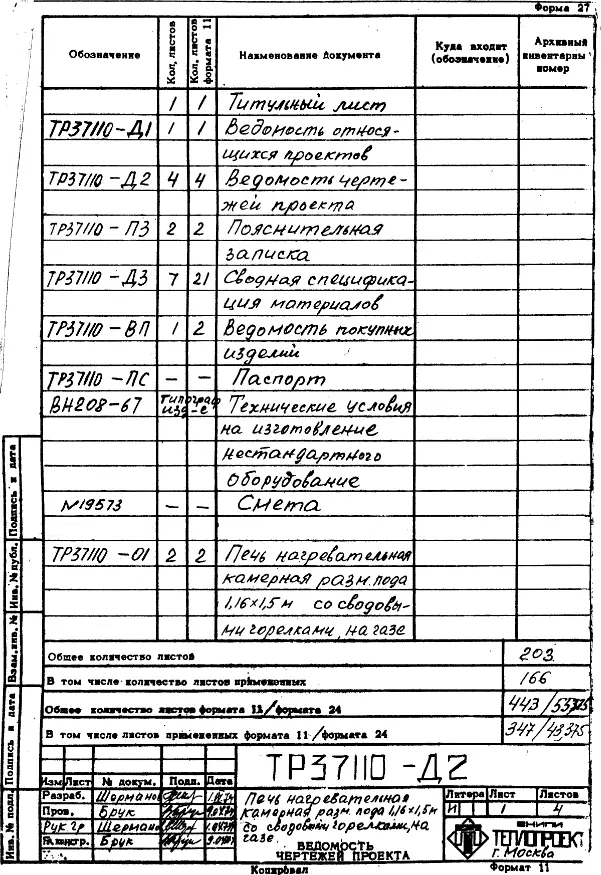 Форма 27
Обозначение Кол. листов Кол. листов формата 11 Наименование Документа Куда входит (обозначение) Архивный инвентарны номер
1 1 Титульный лист
ТР37110-Д1 1 1 Ведомость относя-
щихся проектов
ТР37110-Д2 4 4 Ведомость черте-
жей проекта
ТР37110-ПЗ 2 2 Пояснительная
записка
ТР37110-ДЗ 7 21 Сводная специфика-
ция материалов
ТР37110-ВП 1 2 Ведомость покупных
изделий
ТР37110-ПС — — Паспорт
ВН208-67 Типограф изд-е Технические условия
на изготовление
нестандартного
оборудование
№19573 — — Смета
ТР37110-01 2 2 Печь нагревательная
камерная разм. пода
1,16×1,5м со сводовы-
ми горелками, на газе
Общее количество листов 203
В том числе количество листов применённых 166
Общее количество листов формата 11/формата 24 443/55,375
В том числе листов применённых формата 11/формата 24 347/43,375
Инв. № подл. Подпись и дата Взам. инв. № Инв. № дубл. Подпись и дата
ТР37110-Д2
Изм Лист № докум. Подп. Дата
Разраб. Шерман
Пров. Брук
Рук гр Шерман
Гл. констр. Брук
Печь нагревательная
камерная разм. пода 1,16×1,5м
со сводовыми горелками, на
газе.
ВЕДОМОСТЬ
ЧЕРТЕЖЕЙ ПРОЕКТА
Литера Лист Листов
И 1 4
ВНИПИ
ТЕПЛОПРОЕКТ
г. Москва
Копировал Формат 11